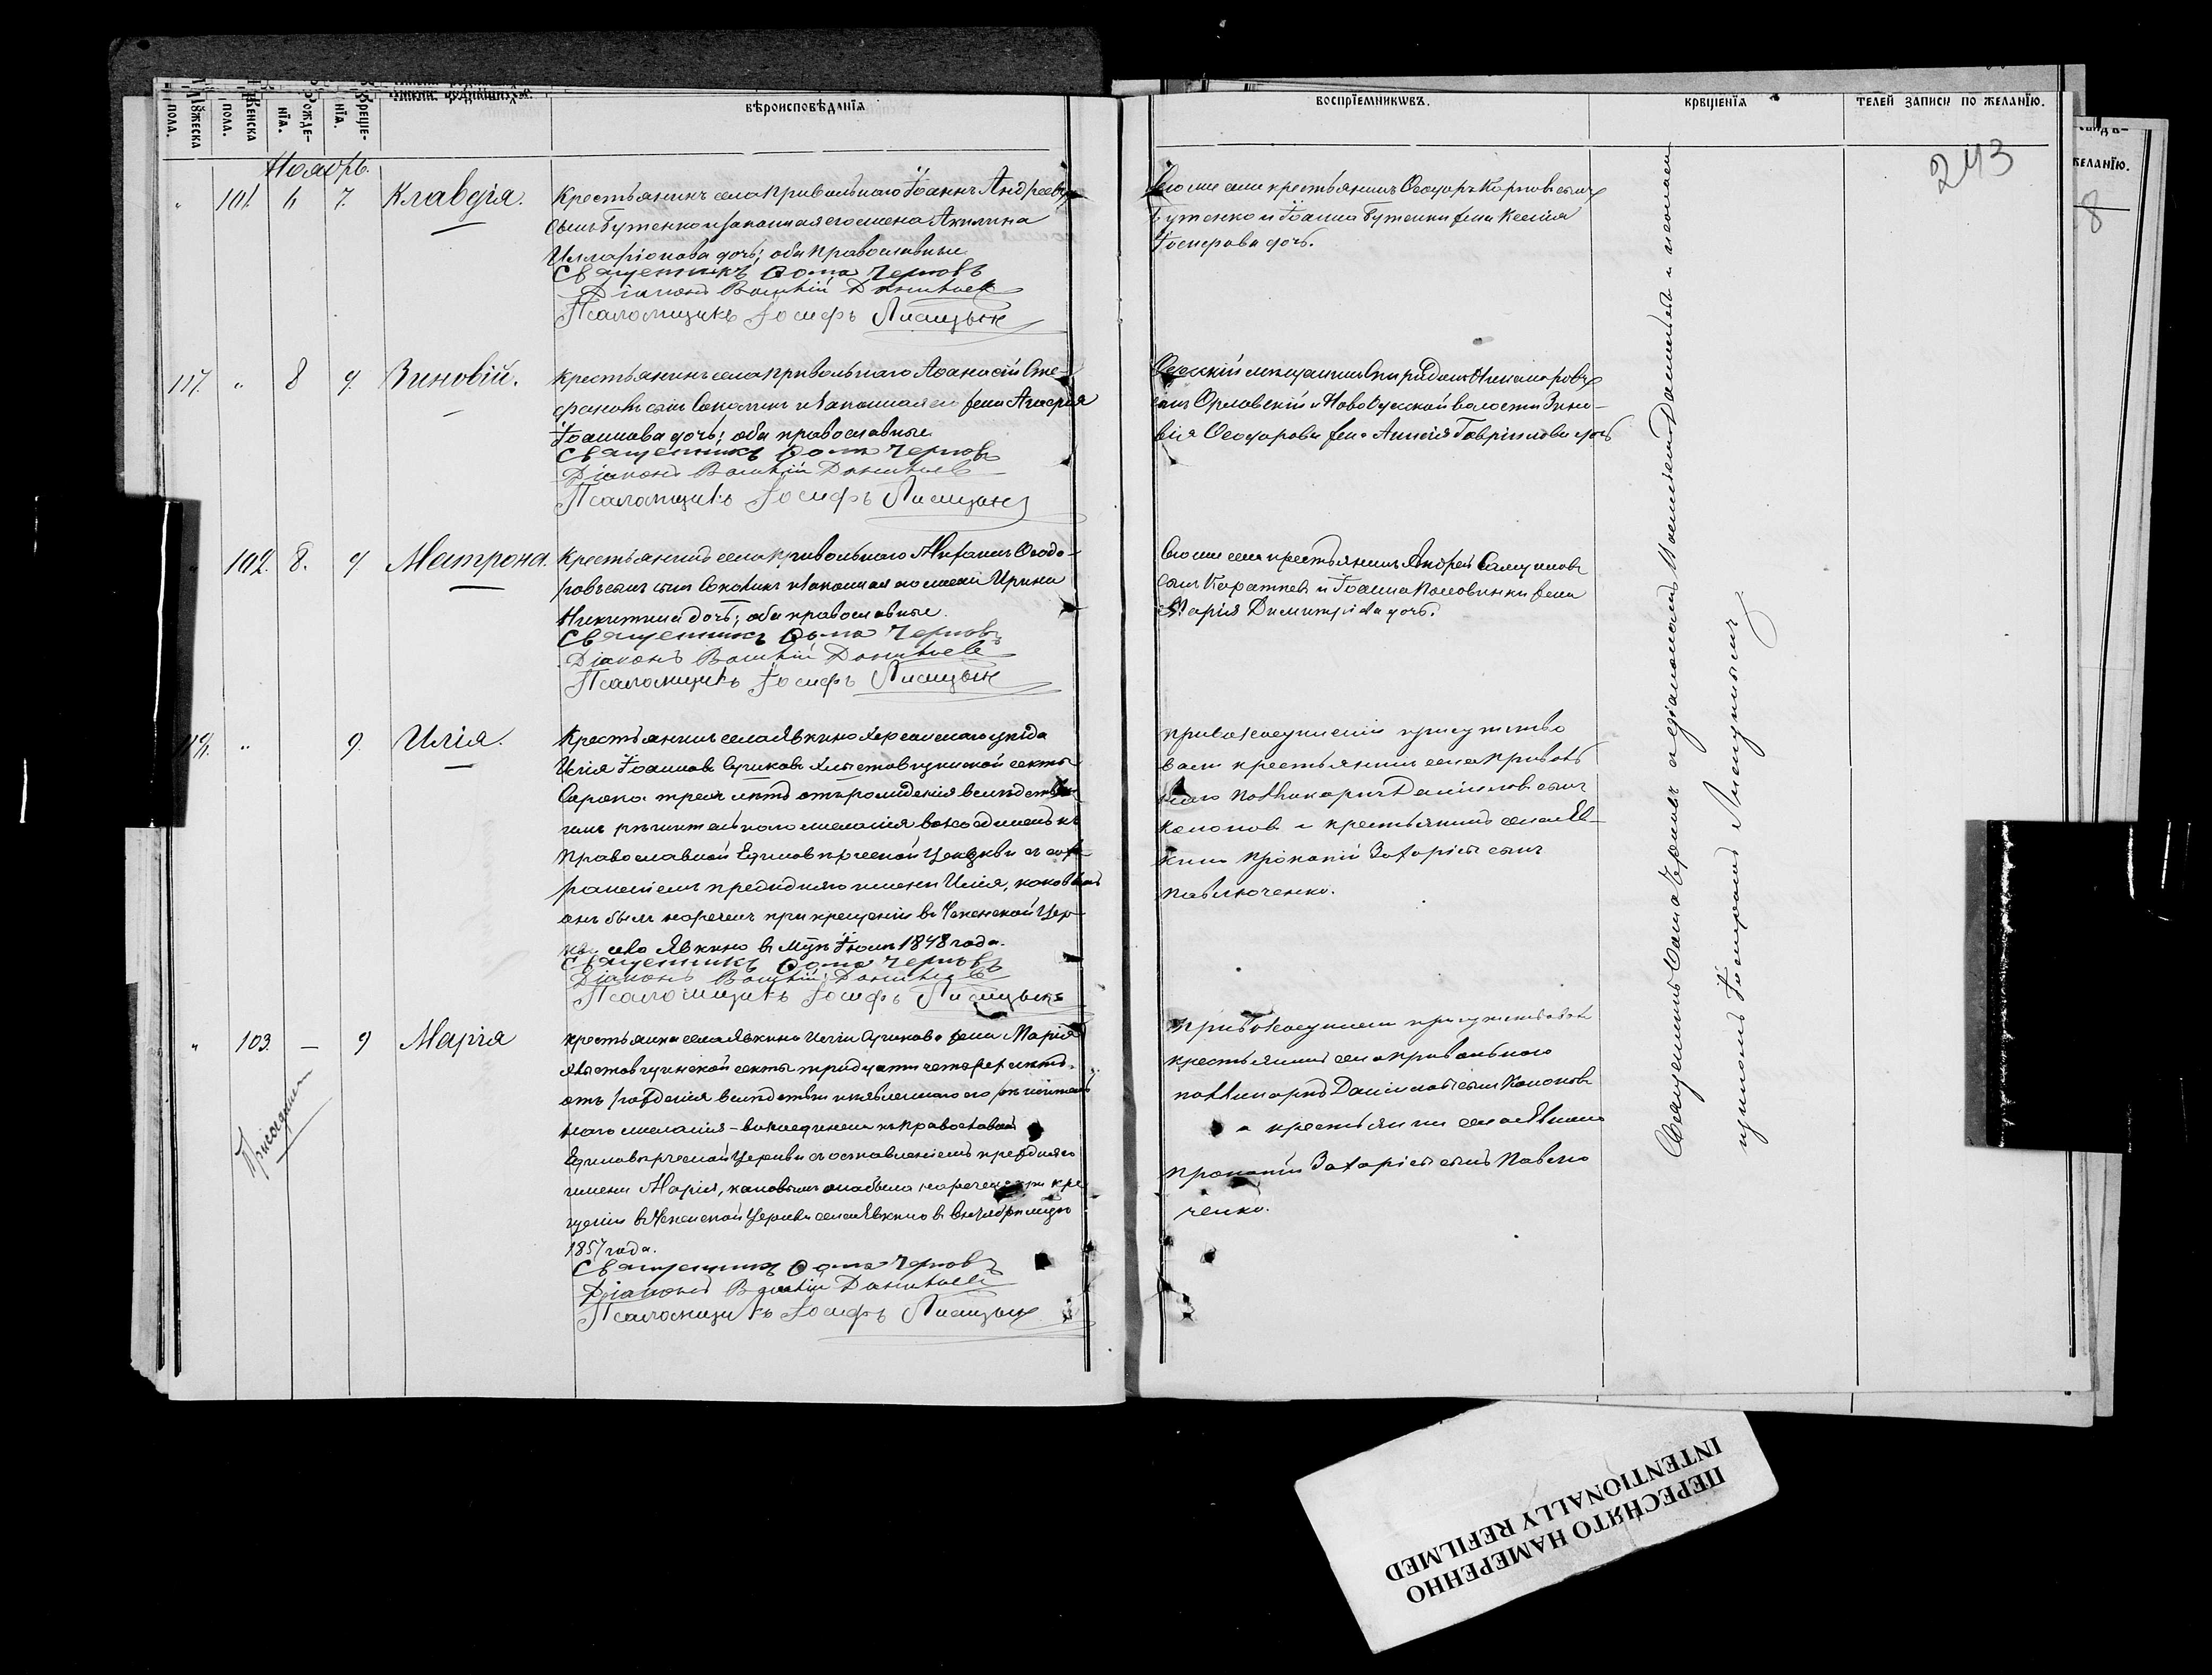 Мꙋжеска пола.
Женска пола.
Рожденїѧ.
Крещенїѧ.
вѣроисповѣданїѧ
воспрїемникѡвъ.
крещенїѧ
телей записи по желанїю.
желанїю.
243
8
Ноябрь
" 101. 6 7. Клавдія.
Крестьянинъ села Привольнаго Іоаннъ Андреевъ
сынъ Бутенко и законная его жена Акилина
Илларіонова дочь; оба православные
Священникъ Ѳома Черновъ
Діаконъ Василій Данильевъ
Псаломщикъ Іосифъ Лисицынъ
Того же села крестьянинъ Ѳеодоръ Карповъ сынъ
Бутенко и Іоанна Бутенки жена Ксенія
Іосифова дочь.
117. " 8 9. Зиновій.
Крестьянинъ села Привольнаго Аѳанасій Сте-
фановъ сынъ Соколинъ и законная его жена Агафія
Іоаннова дочь; оба православные
Священникъ Ѳома Черновъ
Діаконъ Василій Данильевъ
Псаломщикъ Іосифъ Лисицынъ
Одесскій мещанинъ Спиридонъ Никаноровъ
сынъ Орловскій и Новобугской волости Зино-
вія Ѳеодорова жена Анисія Гавріилова дочь
102. 8. 9. Матрона.
Крестьянинъ села Привольнаго Ѳеодо-
ровъ сынъ Соколинъ и законная его жена Ирина
Никитина дочь; оба православные.
Священникъ Ѳома Черновъ
Діаконъ Василій Данильевъ
Псаломщикъ Іосифъ Лисицынъ
Того же села крестьянинъ Андрей Самуиловъ
сынъ и Іоанна Половинки жена
Марія Димитріева дочь.
" 9. Илія.
Крестьянинъ села Явкино Херсонскаго уѣзда
Илія Іоанновъ Суриковъ секты
Сорока трехъ лѣтъ отъ рожденія вслѣдствіе
рѣшительнаго желанія возсоединенъ къ
православной Единовѣрческой Церкви съ сох-
раненіемъ предидняго имени Илія, каковымъ
онъ былъ нареченъ при крещеніи въ Успенской Цер-
кви села Явкино въ м-цѣ Іюлѣ 1848 года.
Священникъ Ѳома Черновъ
Діаконъ Василій Данильевъ
Псаломщикъ Іосифъ Лисицынъ
при возсоединеніи присутство
вали крестьянинъ села Приволь
наго Поликарпъ Даниловъ сынъ
Кононовъ и крестьянинъ села Яв-
кина Прокопій Захаріевъ сынъ
Павлюченко.
" 103. — 9 Марія
Присоедин
крестьянка села Явкина Иліи Сурикова жена Марія
секты тридцати четырехъ лѣтъ
отъ рожденія вслѣдствіе изъявленнаго ею рѣшитель
наго желанія - возсоединена къ Православной
Единовѣрческой Церкви съ оставленіемъ предидняго
имени Марія, каковымъ она была наречена при кре
щеніи въ Успенской Церкви села Явкино въ м-цѣ
1857 года.
Священникъ Ѳома Черновъ
Діаконъ Василій Данильевъ
Псаломщикъ Іосифъ Лисицынъ
при возсоединеніи присутствовали
крестьянинъ села Привольнаго
Поликарпъ Даниловъ сынъ Кононовъ
и крестьянинъ села Явкино
Прокопій Захаріевъ сынъ Павлю
ченко.
Священникъ Ѳома Черновъ съ діакономъ Василіемъ Данильевымъ и псалом
щикомъ Іосифомъ Лисицынымъ
ПЕРЕСНЯТО НАМЕРЕННО
INTENTIONALLY REFILMED